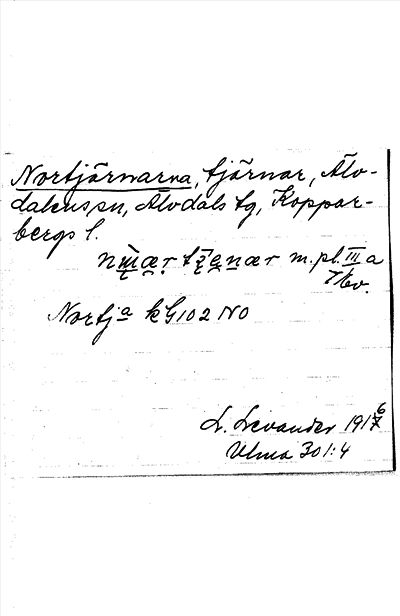 Nortjärnarna, tjärnar, Älv-
dalens sn, Älvdals tg, Koppar-
bergs l.
m. pl. III a
Nortja kG102 NO
L. Levander 1916
Ulma 301:4